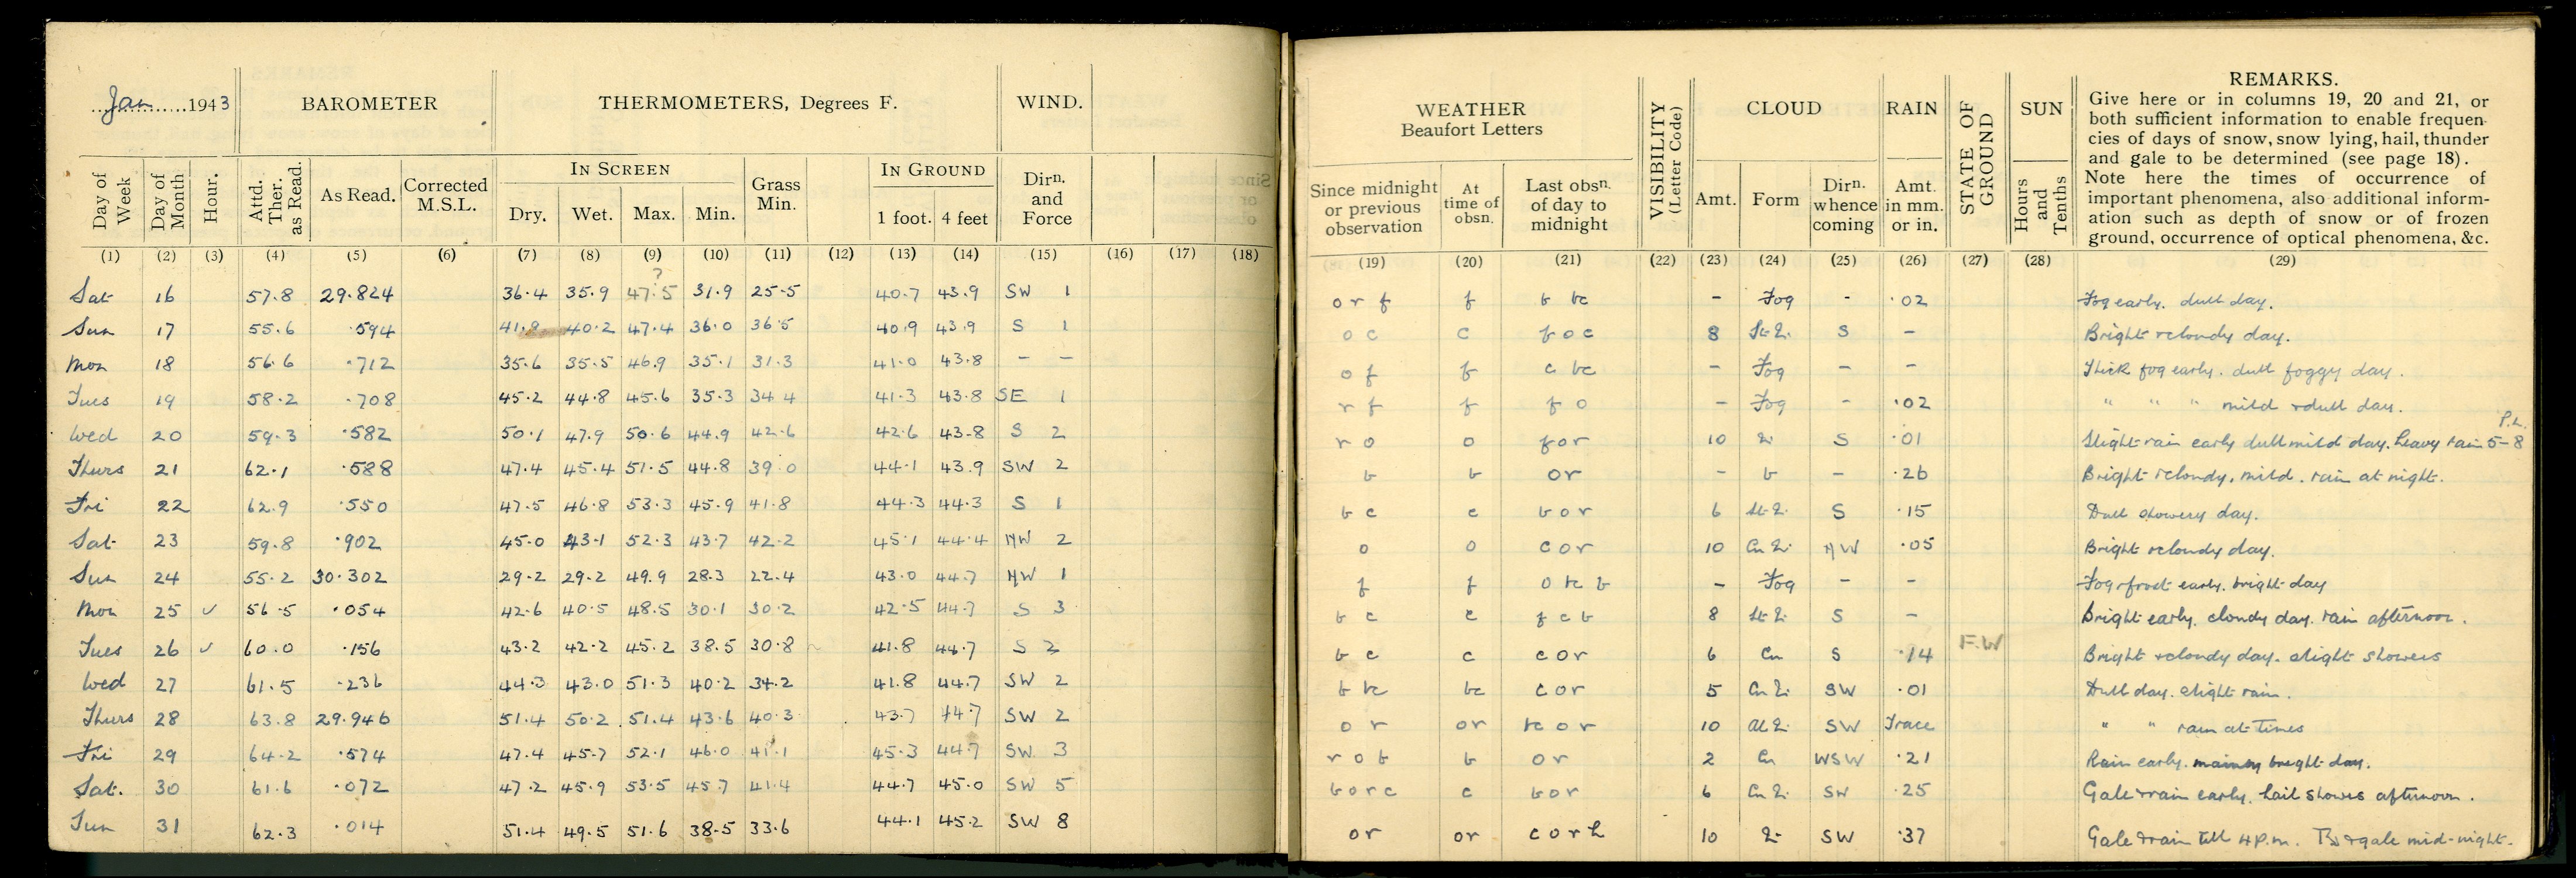 Jan 1943 BAROMETER THERMOMETERS, Degrees F. WIND.
Day of Week Day of Month Hour. Attd. Ther. as Read. As Read. Corrected M.S.L. IN SCREEN Dry. Wet. Max. Min. Grass Min. IN GROUND 1 foot. 4 feet Dirn. and Force
(1) (2) (3) (4) (5) (6) (7) (8) (9) (10) (11) (12) (13) (14) (15) (16) (17) (18)
?
Sat 16 57.8 29.824 36.4 35.9 47.5 31.9 25.5 40.7 43.9 SW 1
Sun 17 55.6 .594 41.8 40.2 47.4 36.0 36.5 40.9 43.9 S 1
Mon 18 56.6 .712 35.6 35.5 46.9 35.1 31.3 41.0 43.8 – –
Tues 19 58.2 .708 45.2 44.8 45.6 35.3 34.4 41.3 43.8 SE 1
Wed 20 59.3 .582 50.1 47.9 50.6 44.9 42.6 42.6 43.8 S 2
Thurs 21 62.1 .588 47.4 45.4 51.5 44.8 39.0 44.1 43.9 SW 2
Fri 22 62.9 .550 47.5 46.8 53.3 45.9 41.8 44.3 44.3 S 1
Sat 23 59.8 .902 45.0 43.1 52.3 43.7 42.2 45.1 44.4 NW 2
Sun 24 55.2 30.302 29.2 29.2 49.9 28.3 22.4 43.0 44.7 NW 1
Mon 25 ✓ 56.5 .054 42.6 40.5 48.5 30.1 30.2 42.5 44.7 S 3
Tues 26 ✓ 60.0 .156 43.2 42.2 45.2 38.5 30.8 41.8 44.7 S 2
Wed 27 61.5 .236 44.3 43.0 51.3 40.2 34.2 41.8 44.7 SW 2
Thurs 28 63.8 29.946 51.4 50.2 51.4 43.6 40.3 43.7 44.7 SW 2
Fri 29 64.2 .574 47.4 45.7 52.1 46.0 41.1 45.3 44.7 SW 3
Sat. 30 61.6 .072 47.2 45.9 53.5 45.7 41.4 44.7 45.0 SW 5
Sun 31 62.3 .014 51.4 49.5 51.6 38.5 33.6 44.1 45.2 SW 8
WEATHER Beaufort Letters VISIBILITY (Letter Code) CLOUD RAIN STATE OF GROUND SUN REMARKS.
Give here or in columns 19, 20 and 21, or
both sufficient information to enable frequen-
cies of days of snow, snow lying, hail, thunder
and gale to be determined (see page 18).
Note here the times of occurrence of
important phenomena, also additional inform-
ation such as depth of snow or of frozen
ground, occurrence of optical phenomena, &c.
Since midnight or previous observation At time of obsn. Last obsn. of day to midnight Amt. Form Dirn. whence coming Amt. in mm. or in. Hours and Tenths
(19) (20) (21) (22) (23) (24) (25) (26) (27) (28) (29)
o r f f b bc – Fog - .02 Fog early. dull day.
o c c f o c 8 S – Bright & cloudy day.
o f f c bc – Fog – – Thick fog early. dull foggy day.
r f f f o – Fog – .02 " " " mild & dull day.
r o o f o r 10 S .01 Slight rain early dull mild day. heavy rain 5–8
b b o r – b – .26 Bright & cloudy, mild. rain at night.
b c c b o r 6 S .15 Dull showery day.
o o c o r 10 NW .05 Bright & cloudy day.
f f o bc b – Fog – – Fog & frost early. bright day
b c c f c b 8 S – Bright early. cloudy day. rain afternoon.
b c c c o r 6 Cu S .14 F.W Bright & cloudy day. slight showers
b bc bc c o r 5 SW .01 Dull day. slight rain.
o r or bc o r 10 SW Trace " " rain at times
r o b b o r 2 Cu WSW .21 Rain early. mainly bright day.
b o r c c b o r 6 SW .25 Gale & rain early. hail showers afternoon.
o r or c o r h 10 SW .37 Gale & rain till 4 p.m. & gale mid-night.